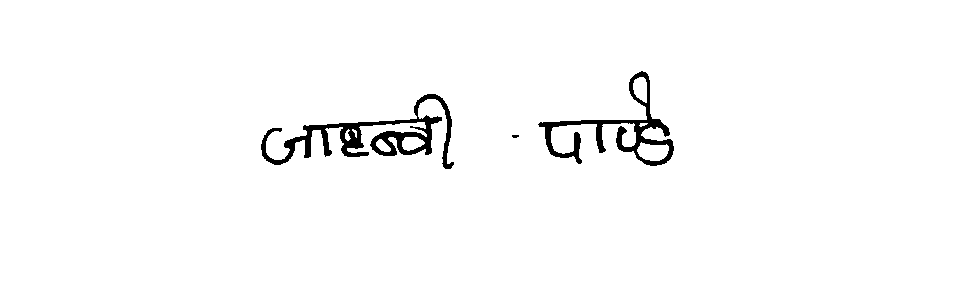 जाह्नवी पाण्डे